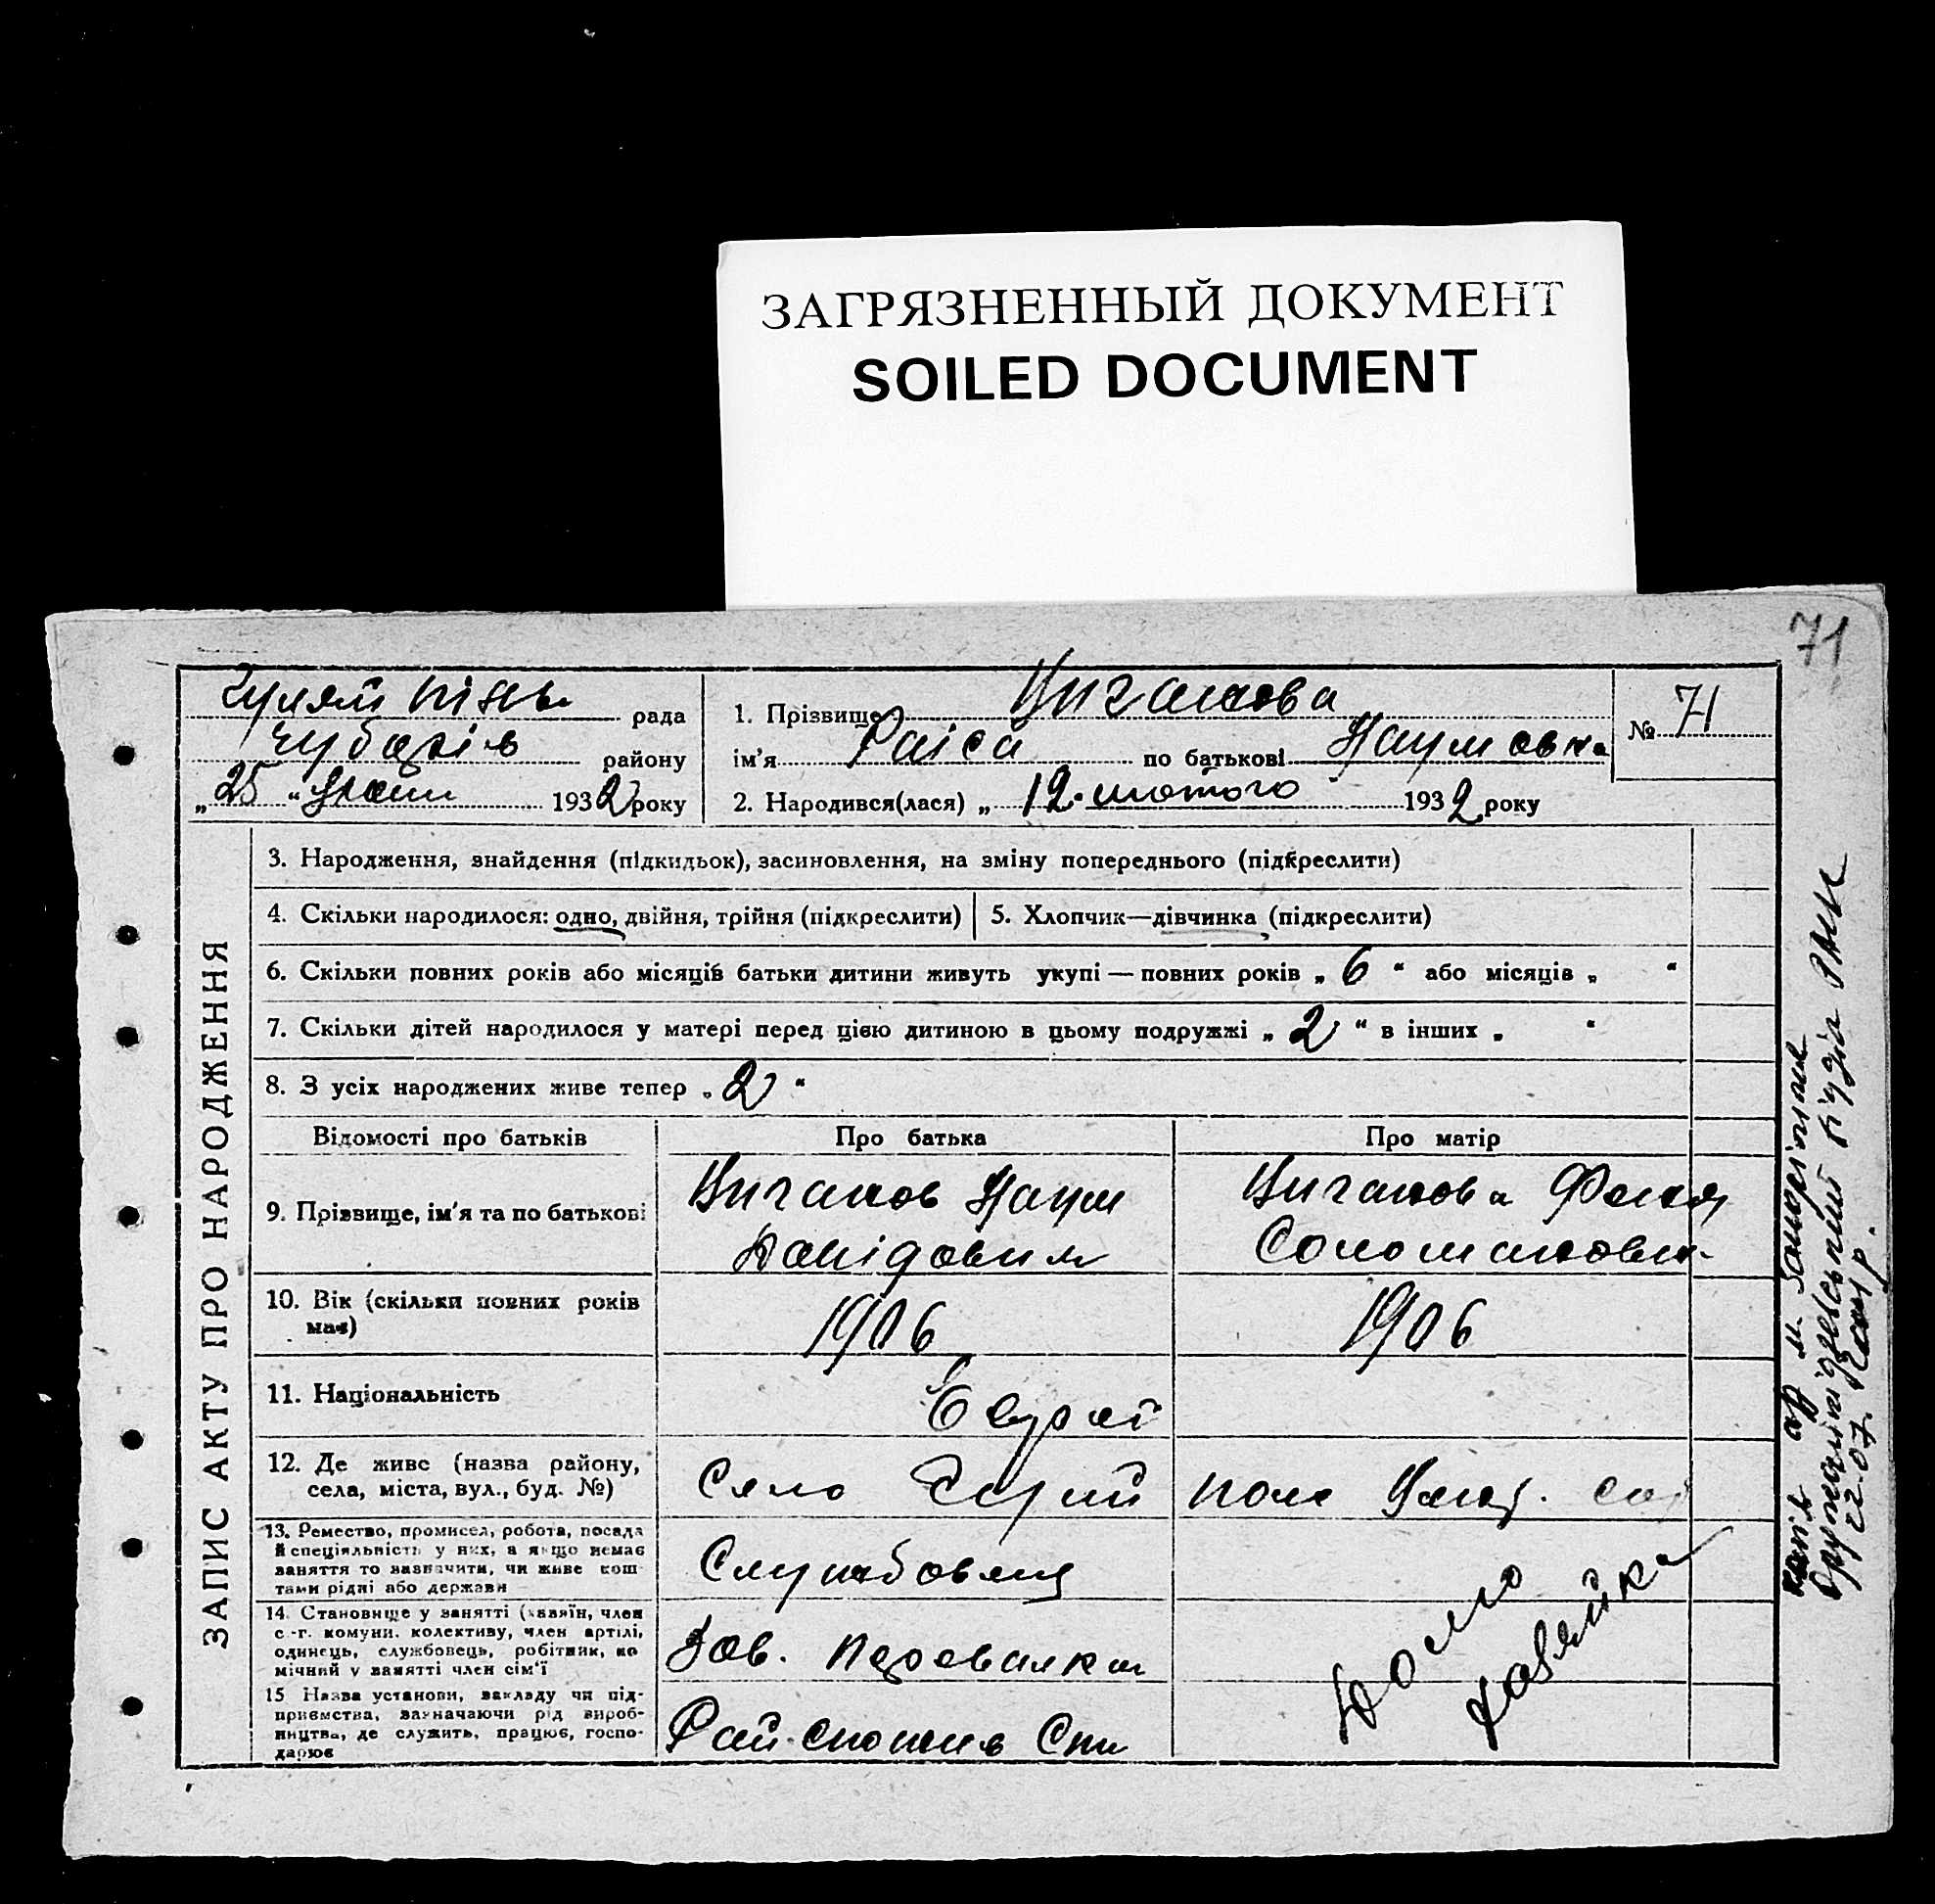 ЗАГРЯЗНЕННЫЙ ДОКУМЕНТ
SOILED DOCUMENT
71
Гуляй піль. рада
Чубарів району
„ 25 “ 1932 року
1. Прізвище Циганова
ім'я Раїса по батькові Наумовна
2. Народився(лася) „ 12. лютого 1932 року
№ 71
ЗАПИС АКТУ ПРО НАРОДЖЕННЯ
3. Народження, знайдення (підкидьок), засиновлення, на зміну попереднього (підкреслити)
4. Скільки народилося: одно, двійня, трійня (підкреслити)
5. Хлопчик—дівчинка (підкреслити)
6. Скільки повних років або місяців батьки дитини живуть укупі — повних років „ 6 “ або місяців „ “
7. Скільки дітей народилося у матері перед цією дитиною в цьому подружжі „ 2 “ в інших „ “
8. З усіх народжених живе тепер „ 2 “
Відомості про батьків
Про батька
Про матір
9. Прізвище, ім'я та по батькові
Циганов Наум
Давідович
Циганова Фаня
Соломоновна
10. Вік (скільки повних років
має)
1906
1906
11. Національність
Євреї
12. Де живе (назва району,
села, міста, вул., буд. №)
Село Гуляй поле
13. Ремество, промисел, робота, посада
й спеціяльність у них, а якщо немає
заняття то зазначити, чи живе кош-
тами рідні або держави
Службовець
14. Становище у занятті (хазяїн, член
с.-г. комуни, колективу, член артілі,
одинець, службовець, робітник, по-
мічний у занятті член сім'ї
Зав. перевалком
15 Назва установи, закладу чи під-
приємства, зазначаючи рід вироб-
ництва, де служить, працює, госпо-
дарює
Рай. спожив Спи
Домо
хазяйка
Копія м. Запоріжжя
Орджонікідзевський відділ РАЦС
22.07.